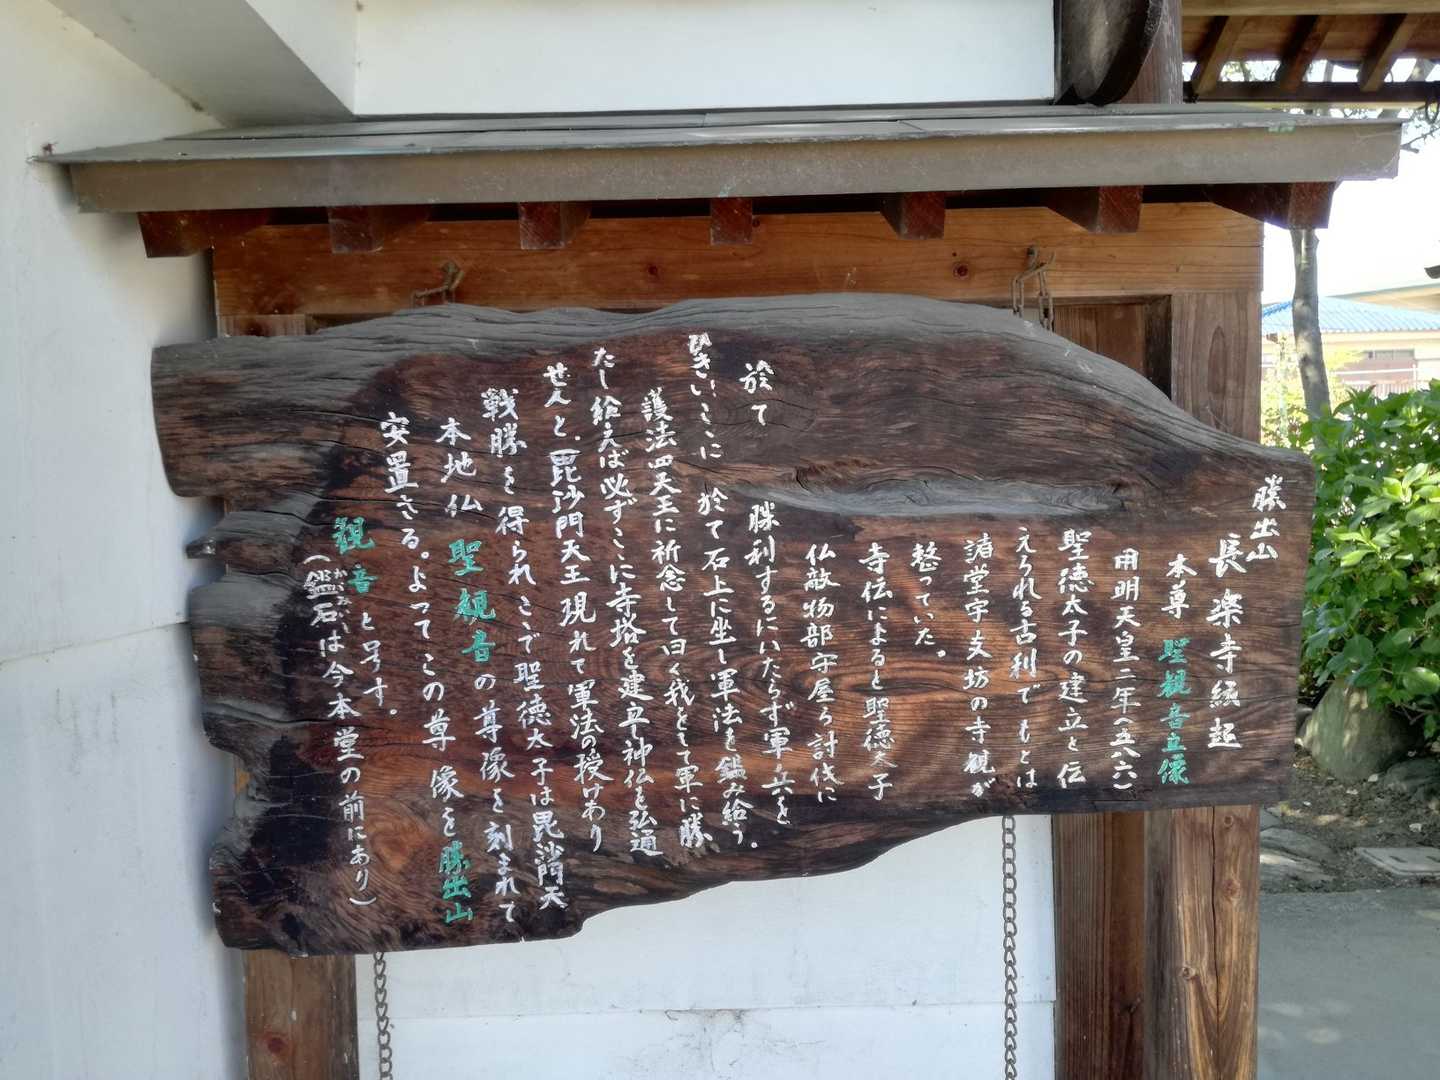 勝出山
長楽寺縁起
本尊 聖観音立像
用明天皇二年(五八六)
聖徳太子の建立と伝
えられる古刹でもとは
諸堂宇支坊の寺観が
整っていた。
寺伝によると聖徳太子
仏敵物部守屋ら討伐に
於て 勝利するにいたらず軍兵を
ひきいここに於て石上に坐し軍法を鑑み給う。
護法四天王に祈念して曰く我をして軍に勝
たし給えば必ずここに寺塔を建立神仏を弘通
せんと、毘沙門天王現れて軍法の授けあり
戦勝を得られここで聖徳太子は毘沙門天
本地仏 聖観音の尊像を刻まれて
安置さる。よってこの尊像を勝出山
観音と号す。
(鑑石は今本堂の前にあり)